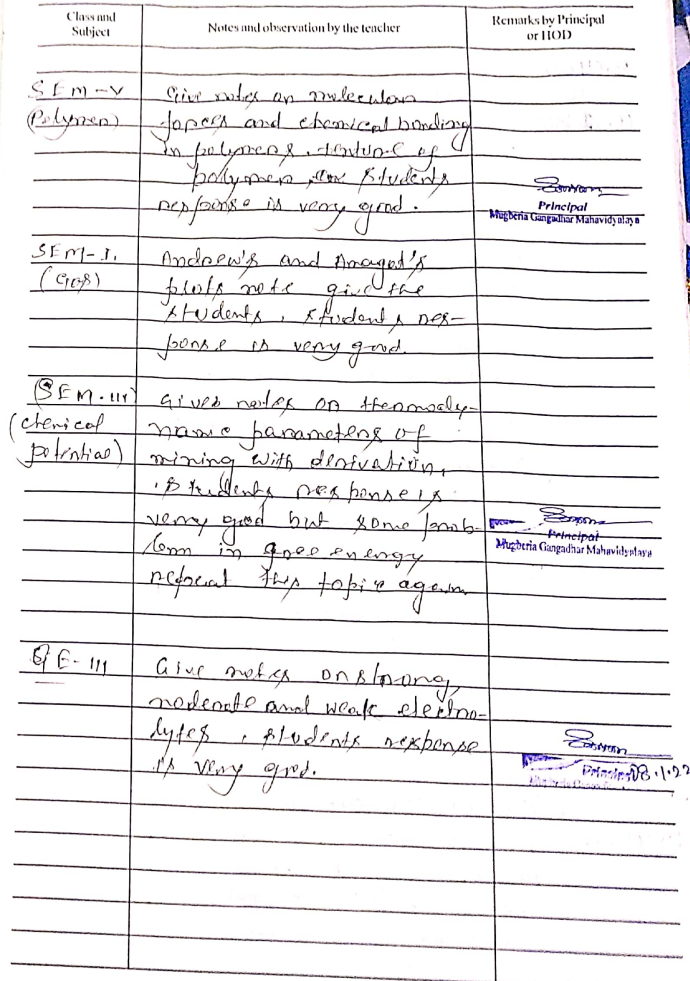 Class and Subject
Notes and observation by the teacher
Remarks by Principal or HOD
SEM-V
(Polymer)
Give notes on molecular
forces and chemical bonding
in polymers. texture of
polymer, students
response is very good.
Principal
Mugberia Gangadhar Mahavidyalaya
SEM-I.
(Gas)
Andrew's and Amagat's
plots note give the
students, students res-
ponse is very good.
(SEM.III)
(chemical
potential)
Gives notes on thermody-
namic parameters of
mixing with derivation,
students response is
very good but some prob-
lem in free energy
repeat this topic again
Principal
Mugberia Gangadhar Mahavidyalaya
GE-III
Give notes on strong,
moderate and weak electro-
lytes, students response
is very good.
Principal
08.1.22